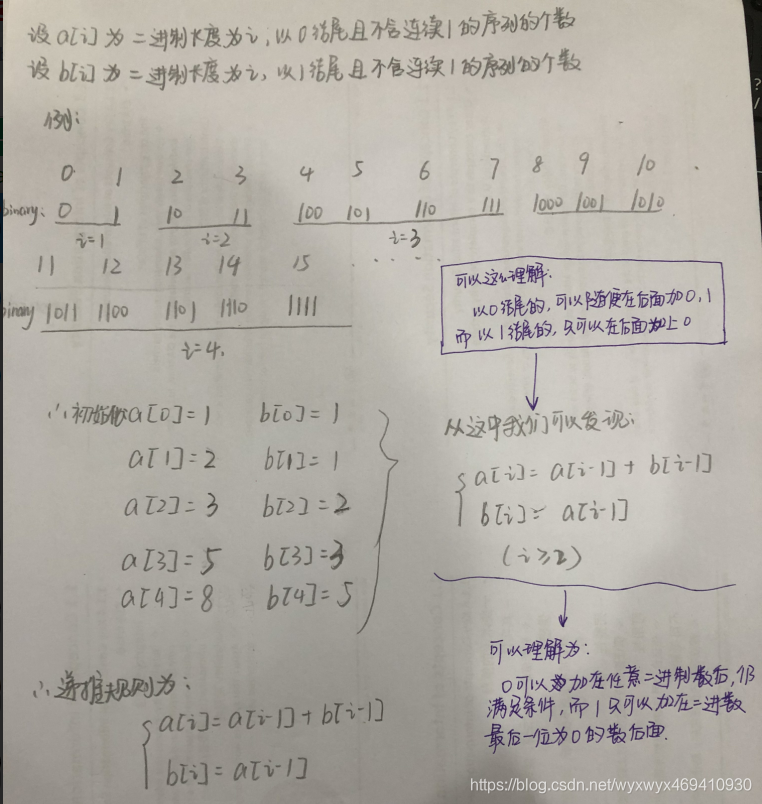 设a[i]为二进制长度为i,以0结尾且不含连续1的序列的个数
设b[i]为二进制长度为i,以1结尾且不含连续1的序列的个数
例:
0 1 2 3 4 5 6 7 8 9 10
binary: 0 1 10 11 100 101 110 111 1000 1001 1010
i=1 i=2 i=3
11 12 13 14 15 ......
binary 1011 1100 1101 1110 1111
i=4.
可以这么理解:
以0结尾的,可以随便在后面加0,1
而以1结尾的,只可以在后面加上0
∴初始化a[0]=1 b[0]=1
a[1]=2 b[1]=1
a[2]=3 b[2]=2
a[3]=5 b[3]=3
a[4]=8 b[4]=5
从这中我们可以发现:
a[i]=a[i-1]+b[i-1]
b[i]=a[i-1]
(i≥2)
可以理解为:
0可以加在任意二进制数后,仍
满足条件,而1只可以加在二进数
最后一位为0的数后面.
∴递推规则为:
a[i]=a[i-1]+b[i-1]
b[i]=a[i-1]
https://blog.csdn.net/wyxwyx469410930